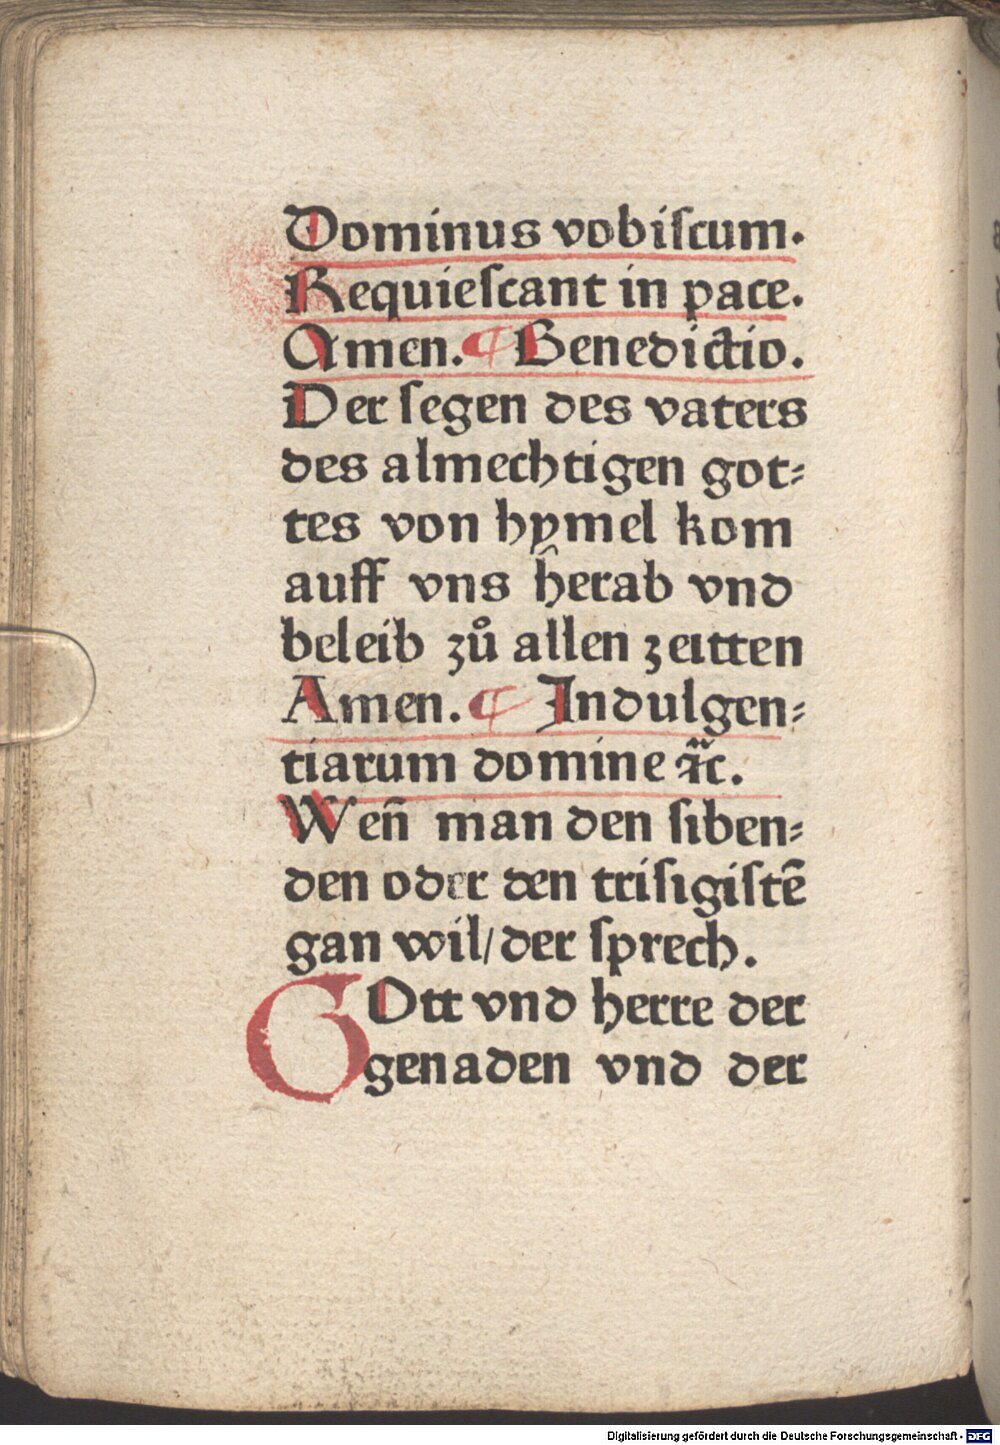 Dominus vobiſcum.
Requieſcant in pace.
Amen. ¶ Benedictio.
Der ſegen des vaters
des almechtigen got⸗
tes von hymel kom
auff vns herab vnd
beleib zů allen zeitten
Amen. ¶ Indulgen⸗
tiarum domine ꝛc̃.
Weñ man den ſiben⸗
den oder den triſigiſtẽ
gan wil/ der ſprech.
GOtt vnd herre der
genaden vnd der
Digitalisierung gefördert durch die Deutsche Forschungsgemeinschaft - DFG